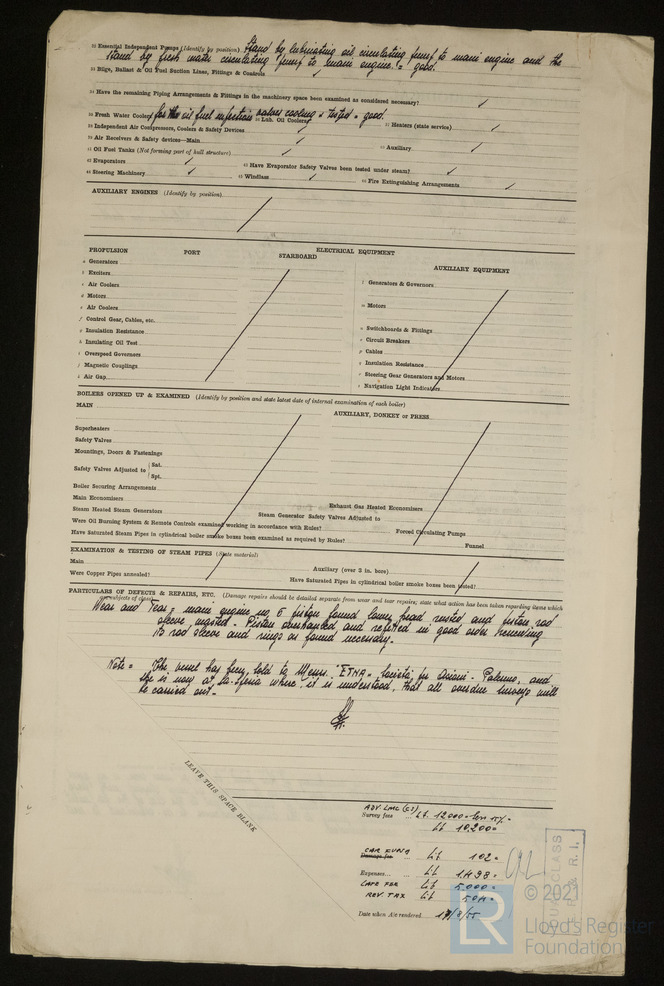 Essential Independent Pumps (Identify by position) Stand by lubricating oil circulating pump to main engine and the
stand by fresh water circulating pump to main engine = good.
Bilge, Ballast & Oil Fuel Suction Lines, Fittings & Controls ✓
Have the remaining Piping Arrangements & Fittings in the machinery space been examined as considered necessary? ✓
Fresh Water Coolers for the oil fuel injection valves cooling = tested = good. Lub. Oil Coolers Heaters (state service) ✓
Independent Air Compressors, Coolers & Safety Devices ✓
Air Receivers & Safety devices—Main ✓ Auxiliary ✓
Oil Fuel Tanks (Not forming part of hull structure) ✓
Evaporators ✓ Have Evaporator Safety Valves been tested under steam? ✓
Steering Machinery ✓ Windlass ✓ Fire Extinguishing Arrangements ✓
AUXILIARY ENGINES (Identify by position)
ELECTRICAL EQUIPMENT
PROPULSION PORT STARBOARD
a Generators
b Exciters
c Air Coolers
d Motors
e Air Coolers
f Control Gear, Cables, etc.
g Insulation Resistance
h Insulating Oil Test
i Overspeed Governors
j Magnetic Couplings
k Air Gap
AUXILIARY EQUIPMENT
l Generators & Governors
m Motors
n Switchboards & Fittings
o Circuit Breakers
p Cables
q Insulation Resistance
r Steering Gear Generators and Motors
s Navigation Light Indicators
BOILERS OPENED UP & EXAMINED (Identify by position and state latest date of internal examination of each boiler)
MAIN AUXILIARY, DONKEY or PRESS
Superheaters
Safety Valves
Mountings, Doors & Fastenings
Safety Valves Adjusted to Sat.
Spt.
Boiler Securing Arrangements
Main Economisers Exhaust Gas Heated Economisers
Steam Heated Steam Generators Steam Generator Safety Valves Adjusted to
Were Oil Burning System & Remote Controls examined working in accordance with Rules? Forced Circulating Pumps
Have Saturated Steam Pipes in cylindrical boiler smoke boxes been examined as required by Rules? Funnel
EXAMINATION & TESTING OF STEAM PIPES (State material)
Main Auxiliary (over 3 in. bore)
Were Copper Pipes annealed? Have Saturated Pipes in cylindrical boiler smoke boxes been tested?
PARTICULARS OF DEFECTS & REPAIRS, ETC. (Damage repairs should be detailed separate from wear and tear repairs; state what action has been taken regarding items which
are subjects of class)
Wear and Tear = main engine no 6 piston found lower head rusted and piston rod
sleeve wasted - Piston overhauled and refitted in good order renewing
its rod sleeve and rings as found necessary.
Note = The vessel has been sold to Messrs. "ETNA" Società per Azioni - Palermo, and
she is now at La-Spezia where it is understood, that all overdue surveys will
be carried out.
LEAVE THIS SPACE BLANK
ADV. LMC (CS)
Survey fees Lt. 12000= less 15%=
Lt 10,200=
CAR FUND
Damage fee Lt 102=
Expenses Lt 1,498=
LATE FEE Lt 5,000=
REV. TAX Lt 504=
Date when A/c rendered 19/8/55
CLASS
R. I.
LR
© 2021
Lloyd's Register
Foundation